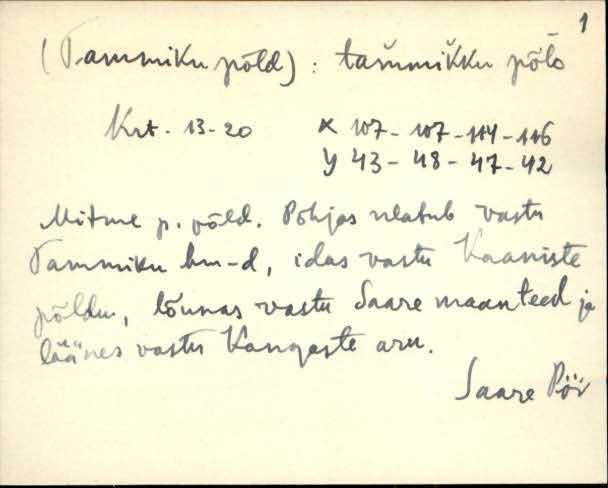 1
(Tammiku põld) : tam̆mik̆ku põl̆D
Krt. 13-20 X 107-107-114-116
Y 43-48-47-42
Mitme p. põld. Põhjas ulatub vastu
Tammiku hm-d, idas vastu Kaaniste
põldu, lõunas vastu Saare maanteed ja
läänes vastu Kangaste aru.
Saare Pöi